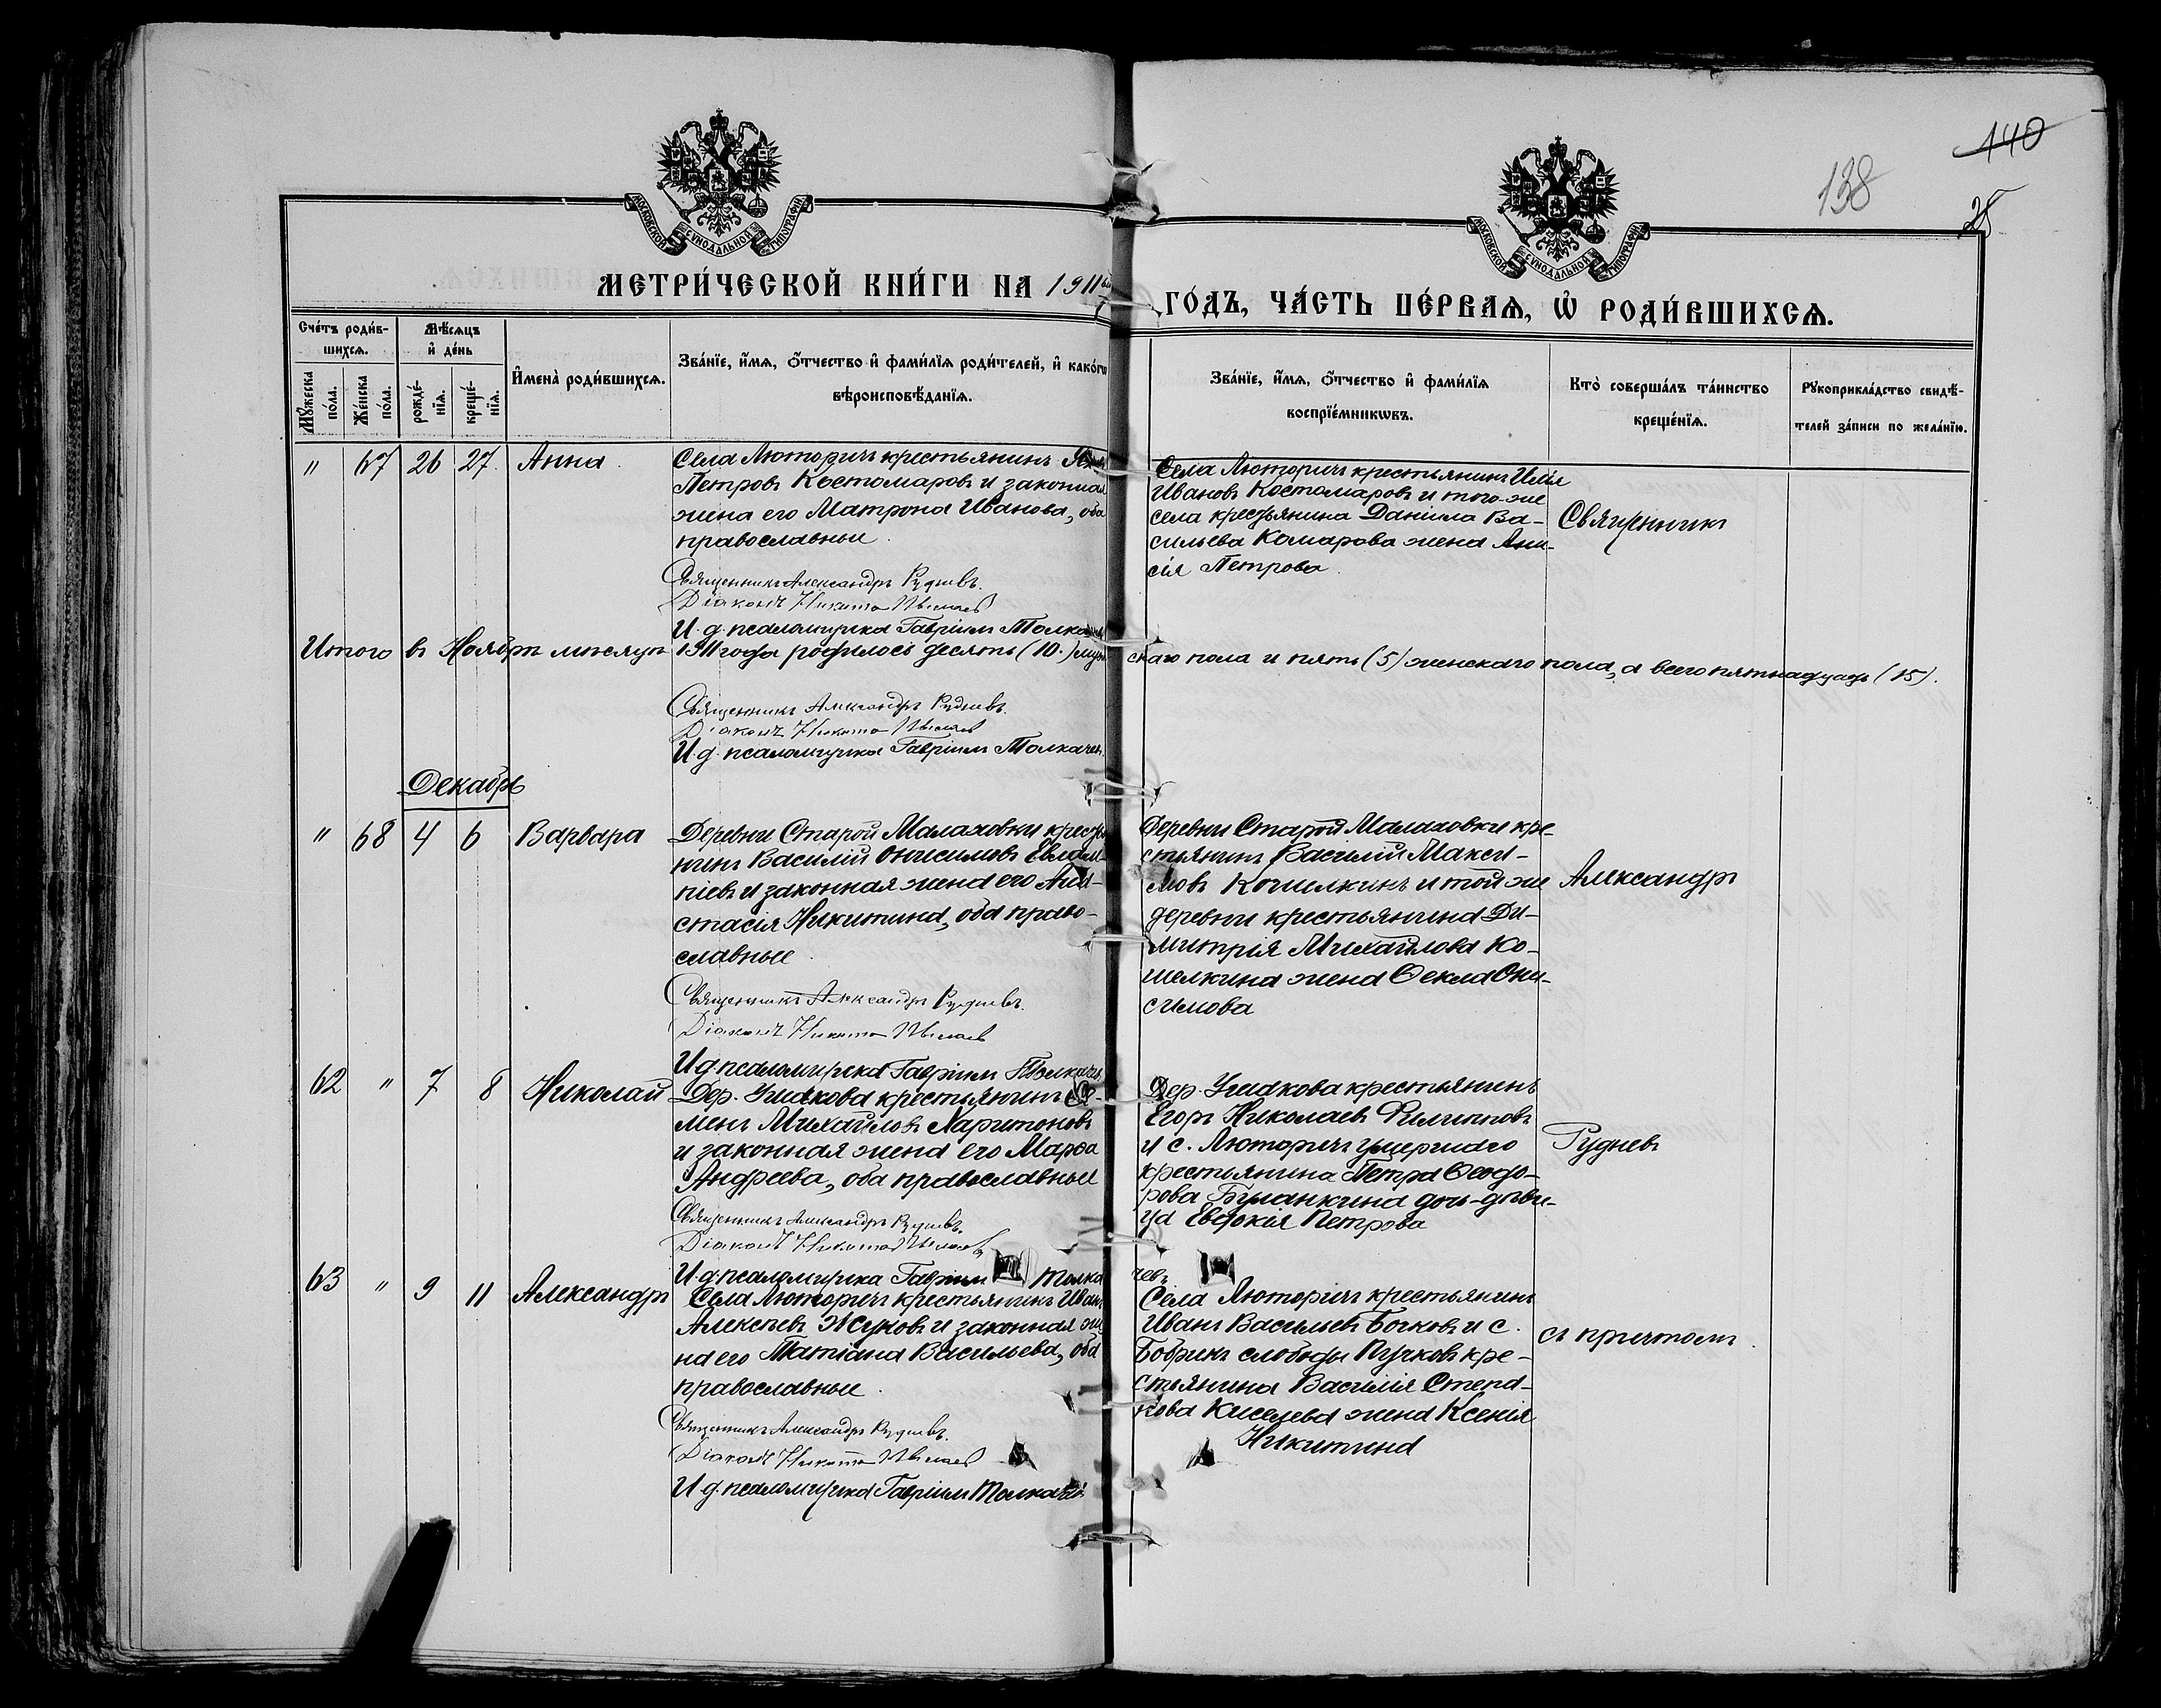 140
138
25
МОСКОВСКОЙ СѴНОДАЛЬНОЙ ТИПОГРАФІИ
МОСКОВСКОЙ СѴНОДАЛЬНОЙ ТИПОГРАФІИ
МЕТРИ́ЧЕСКОЙ КНИ́ГИ НА 1911
ГО́ДЪ, ЧА́СТЬ ПЕ́РВАѦ, Ѡ҆ РОДИ́ВШИХСѦ.
Сче́тъ роди́в-
шихсѧ.
Мѣ́сѧцъ
и҆ де́нь
Мꙋ́жеска
по́ла.
Же́нска
по́ла.
рожде́-
нїѧ.
креще́-
нїѧ.
И҆мена̀ роди́вшихсѧ.
Зва́нїе, и҆́мѧ, ѻ҆́тчество и҆ фами́лїѧ роди́телей, и҆ како́гѡ
вѣроисповѣ́данїѧ.
Зва́нїе, и҆́мѧ, ѻ҆́тчество и҆ фами́лїѧ
воспрїе́мникѡвъ.
Кто̀ соверша́лъ та́инство
креще́нїѧ.
Рꙋкоприкла́дство свидѣ́-
телей за́писи по жела́нїю.
" 67 26 27. Анна.
Села Люторичъ крестьянинъ
Петровъ Костомаровъ и законная
жена его Матрона Иванова, оба
православные.
Священникъ Александръ Рудневъ.
Діаконъ Никита
И. д. псаломщика Гавріилъ Толкачевъ
Села Люторичъ крестьянинъ Илія
Ивановъ Костомаровъ и того-же
села крестьянина Даніила Ва-
сильева Комарова жена Ани-
сія Петрова.
Священникъ
Итого въ Ноябрѣ мѣсяцѣ 1911 года родилось десять (10.) муж
скаго пола и пять (5) женскаго пола, а всего пятнадцать (15).
Священникъ Александръ Рудневъ.
Діаконъ Никита
И. д. псаломщика Гавріилъ Толкачевъ.
Декабрь
" 68 4 6 Варвара
Деревни Старой Малаховки кресть
нинъ Василій Онисимовъ Евлам-
піевъ и законная жена его Ана-
стасія Никитина, оба право-
славные.
Священникъ Александръ Рудневъ.
Діаконъ Никита
И. д. псаломщика Гавріилъ Толкачевъ.
Деревни Старой Малаховки кре-
стьянинъ Василій Макси-
мовъ Кошелкинъ и той же
деревни крестьянина Ди-
митрія Михайлова Ко-
шелкина жена Ѳекла Они-
симова
Александръ
62 " 7 8 Николай
Дер. Ушакова крестьянинъ Се-
менъ Михайловъ Харитоновъ
и законная жена его Марѳа
Андреева, оба православные
Священникъ Александръ Рудневъ.
Діаконъ Никита
И. д. псаломщика Гавріилъ Толка
чевъ
Дер. Ушакова крестьянинъ
Егоръ Николаевъ Филипповъ
и с. Люторичъ умершаго
крестьянина Петра Ѳеодо-
рова Буланкина дочь-дѣви-
ца Евдокія Петрова
Рудневъ
63 " 9 11 Александръ
Села Люторичъ крестьянинъ Иванъ
Алексѣевъ Жуковъ и законная же
на его Татіана Васильева, оба
православные.
Священникъ Александръ Рудневъ.
Діаконъ Никита
И. д. псаломщика Гавріилъ Толкачевъ
Села Люторичъ крестьянинъ
Иванъ Васильевъ Бочковъ и с.
Бобрикъ слободы Пучковъ кре-
стьянина Василія Степа-
нова Киселева жена Ксенія
Никитина
съ причтомъ.